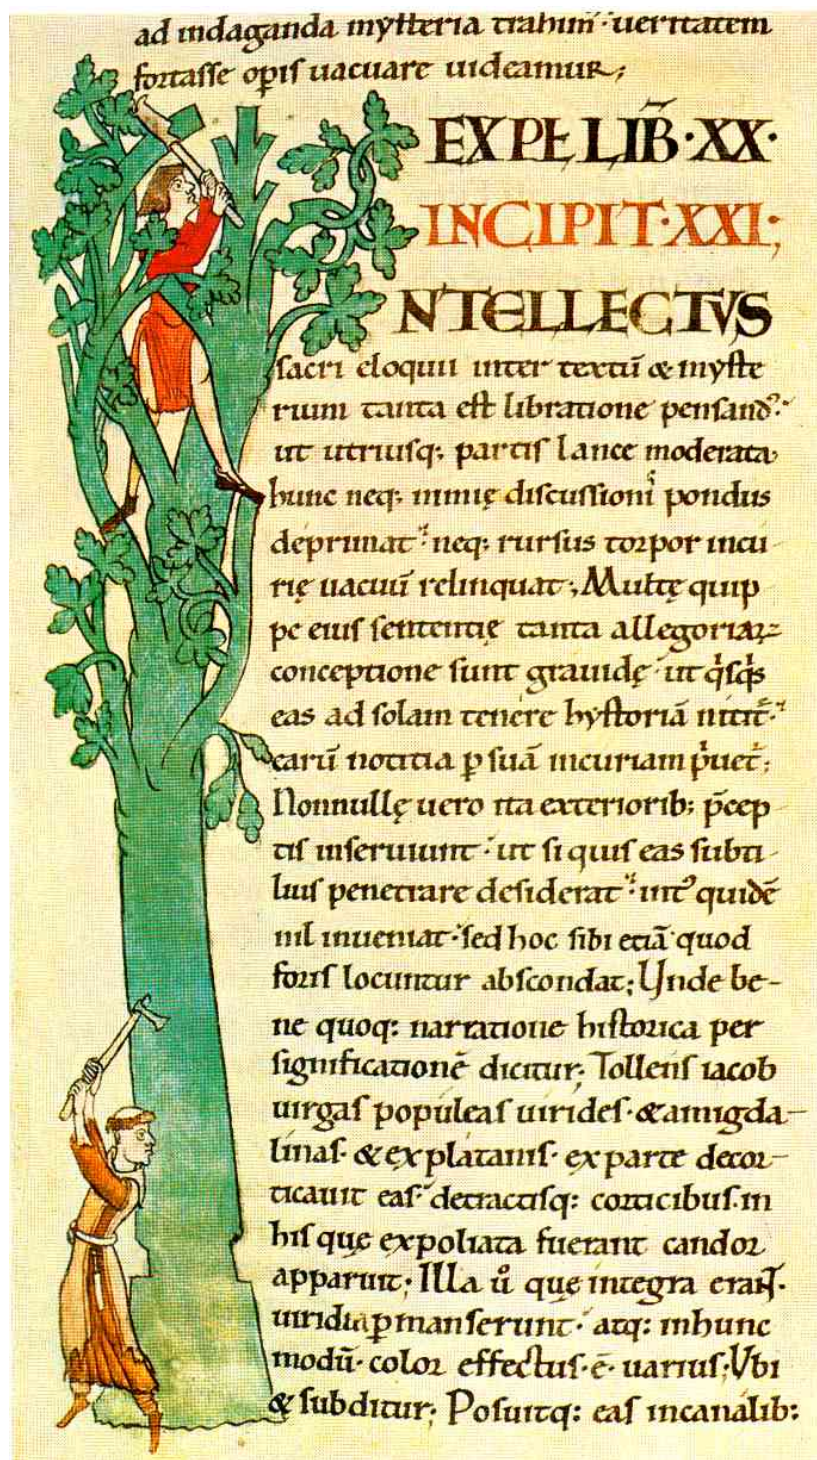 ad indaganda mysteria trahim᷒· ueritatem
fortasse opis uacuare uideamur;
EXPL LIB̄·XX·
INCIPIT·XXI;
NTELLECTVS
sacri eloquii inter textū & myste
rium tanta est libratione pensand᷒·
ut utriusq; partis lance moderata
hunc neq; nimię discussioni pondus
deprimat· neq; rursus torpor incu
rię uacuū relinquat; Multę quip
pe eius sententię tanta allegoriaꝝ
conceptione sunt grauidę· ut qisqis
eas ad solam tenere hystoriā nitit᷒·
earū notitia ꝑ suā incuriam priuet᷒;
Nonnullę uero ita exteriorib; p̄cep
tis inseruiunt· ut si quis eas subti
lius penetrare desiderat· int᷒ quidē
nil inueniat· sed hoc sibi etiā quod
foris locuntur abscondat; Unde be-
ne quoq; narratione historica per
significationē dicitur; Tollens iacob
uirgas populeas uirides· & amigda-
linas· & ex platanis· ex parte decor-
ticauit eas· detractisq; corticibus· in
his que expoliata fuerant candor
apparuit; Illa ů que integra eraɴt·
uiridia ꝑmanserunt· atq; in hunc
modū· color effectus· ē· uarius; Vbi
& subditur; Posuitq; eas in canalib;